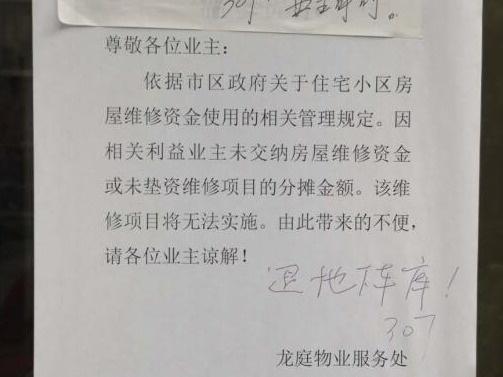 尊敬各位业主:
依据市区政府关于住宅小区房
屋维修资金使用的相关管理规定。因
相关利益业主未交纳房屋维修资金
或未垫资维修项目的分摊金额。该维
修项目将无法实施。由此带来的不便,
请各位业主谅解!
退地库!
307
龙庭物业服务处